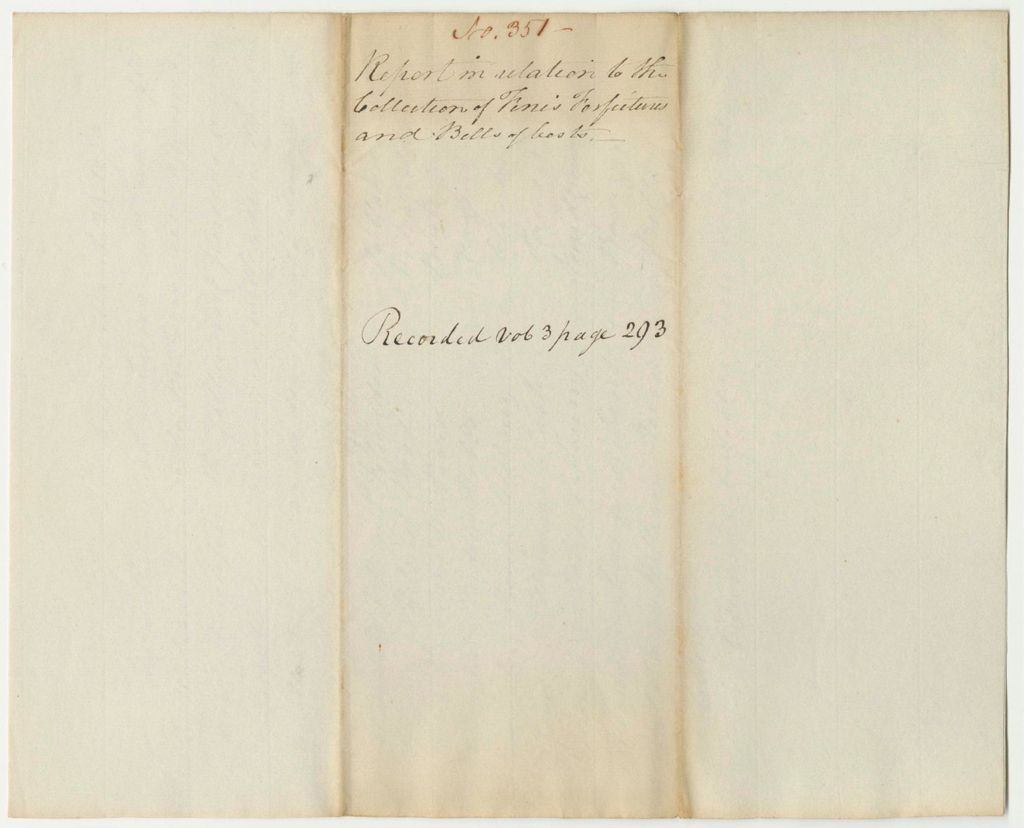 No. 351 -
Report in relation to the
Collection of Fines Forfeitures
and Bills of Costs. —
Recorded vol 3 page 293